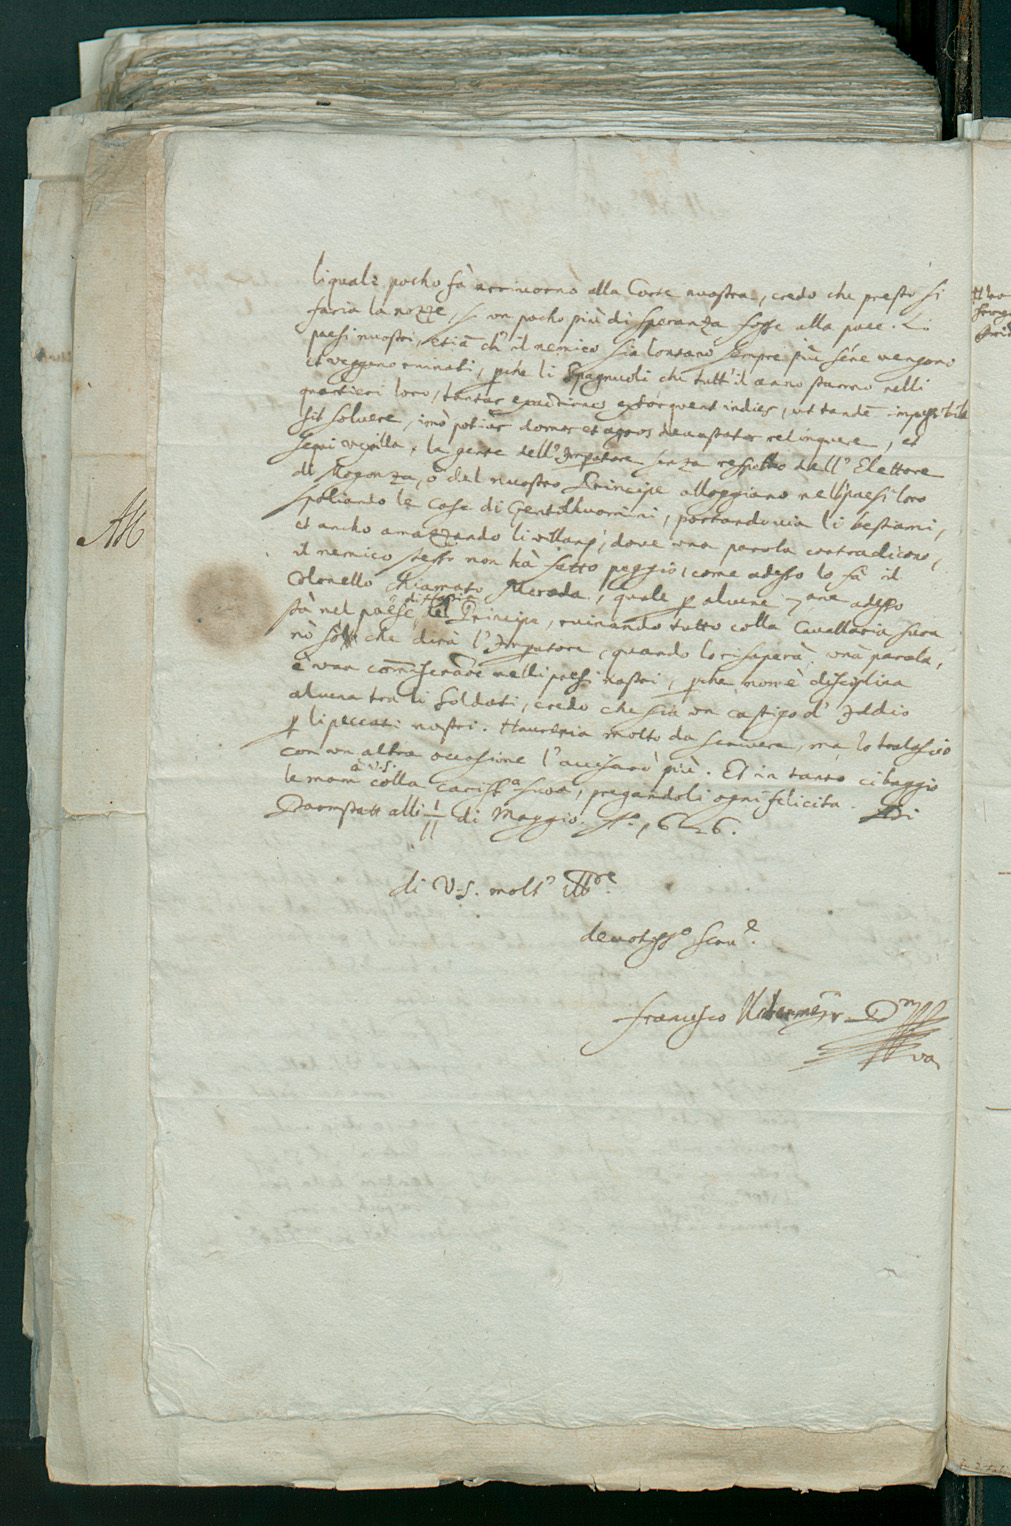 li quali pocho fà arrivorno alla Corte nuostra, credo che presto si
faria la nozze, si un pocho più di speranza fosse alla pace. Li
paesi nuostri, etiã ch' il nemico sia lontano sempre più se ne vengono
et veggono ruinati, pche li Spagnuoli chi tutt' il anno stanno nelli
quartieri loro, tantas extorquent indies, ut tandẽ impossibile
sit solvere, imò potius domos et agros devastatos relinquere, et
sequi vexilla, la gente dell' Imperatore senza rispetto dell' Elettore
di Mogonza, o del nuostro Principe alloggiano nelli paesi loro
spoliando le case di Gentilhuomini, portando via li bestiami,
et ancho amazzando li villani, dove una parola contradicono,
il nemico stesso non hà fatto peggio, come adesso lo fà il
Colonello chiamato Merode, quale p alcune 7ane adesso
stà nel paese del Principe, ruinando tutto colla Cavallaria sua
di Hassia
nò sò che dirà l' Imperatore, quando lo risaperà, unà parola,
è una cõmiseraõe nelli paesi nostri, pche non è disciplina
alcuna tra li Soldati, credo che sia un castigo d' Iddio
p li peccati nostri. Haveria molto da scrivere, ma lo tralascio
con un altra occasione l' avisarò più. Et in tanto ci baggio
le mani à V.S. colla cariss.ª sua, pregandoli ogni felicita. Di
Darmstatt alli 1/11 di Maggio. Aº. 1626.
di V.S. molt' Ill.re
devotiss.º Serv.e
Francesco D.m
AH